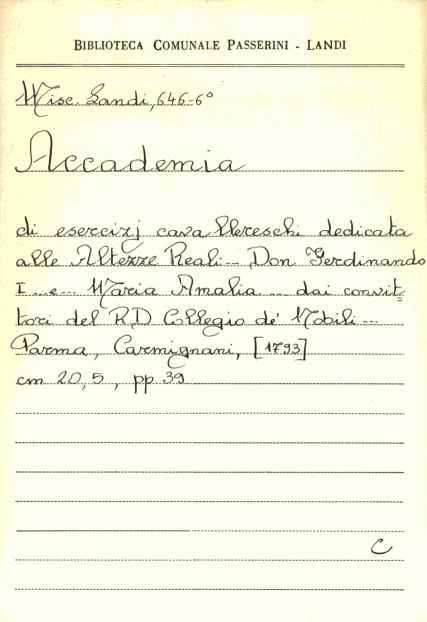 BIBLIOTECA COMUNALE PASSERINI - LANDI
Misc. Landi, 646-6°
Accademia
di esercizj cavallereschi dedicata
alle Altezze Reali... Don Ferdinando
I... e... Maria Amalia... dai convit=
tori del R.D. Collegio de' Nobili...
Parma, Carmignani, [1793]
cm 20,5, pp 39
C